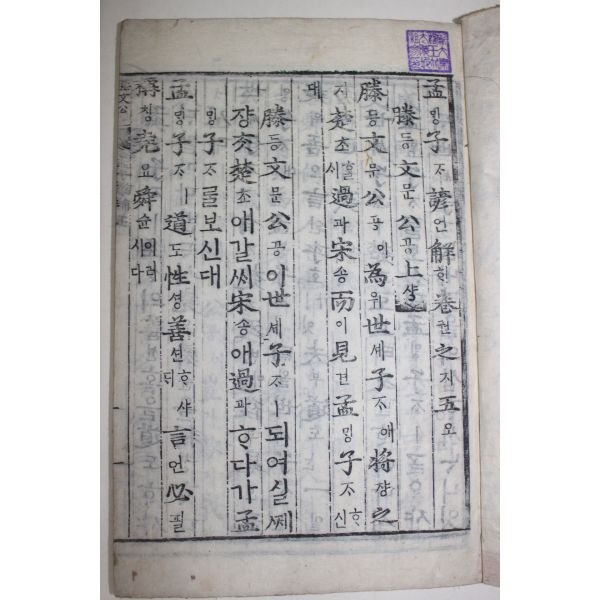 孟ᄆᆡᆼ子ᄌᆞ諺언解ᄒᆡ卷권之지五오
滕등文문公공上샹
滕등文문公공이爲위世셰子ᄌᆞ애將쟝之
지楚초ᄒᆞᆯᄉᆡ過과宋송而이見견孟ᄆᆡᆼ子ᄌᆞᄒᆞ신
대
滕등文문公공이世셰子ᄌᆞㅣ되여실ᄢᅦ
쟝ᄎᆞᆺ楚초애갈ᄊᆡ宋송애過과ᄒᆞ다가孟
ᄆᆡᆼ子ᄌᆞᄅᆞᆯ보신대
孟ᄆᆡᆼ子ᄌᆞㅣ道도性셩善션ᄒᆞ샤ᄃᆡ言언必필
稱칭堯요舜슌이러시다